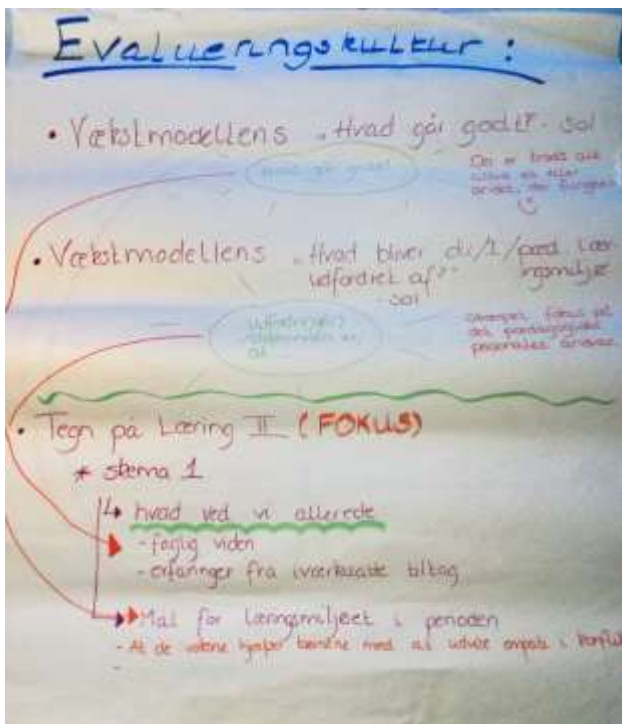 Evalueringskultur :
• Vækstmodellens „Hvad går godt?" sol
Hvad går godt?
• Vækstmodellens „Hvad bliver du/I/pæd. Lær-
ingsmiljø
udfordret af?"
sol
Udfordringen
• Tegn på Læring II (FOKUS)
* skema 1
hvad ved vi allerede
- faglig viden
- erfaringer fra iværksatte tiltag
Mål for læringsmiljøet i perioden
- At de voksne hjælper børnene med at udvise empati i konflikt